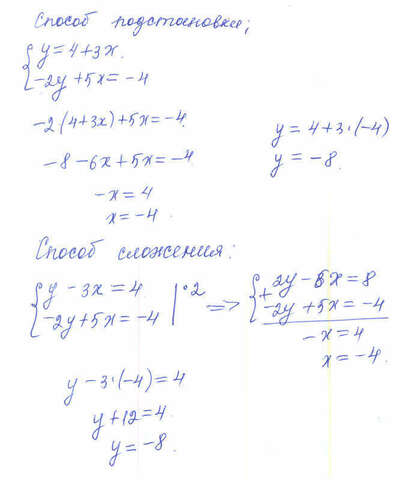 Способ подстановки;
{y = 4 + 3x.
{-2y + 5x = -4
-2(4+3x)+5x = -4.
-8 - 6x + 5x = -4
-x = 4
x = -4.
y = 4 + 3·(-4)
y = -8.
Способ сложения:
{y - 3x = 4 |·2
{-2y + 5x = -4
=> {2y - 6x = 8
+ {-2y + 5x = -4
-x = 4
x = -4.
y - 3·(-4) = 4
y + 12 = 4.
y = -8.